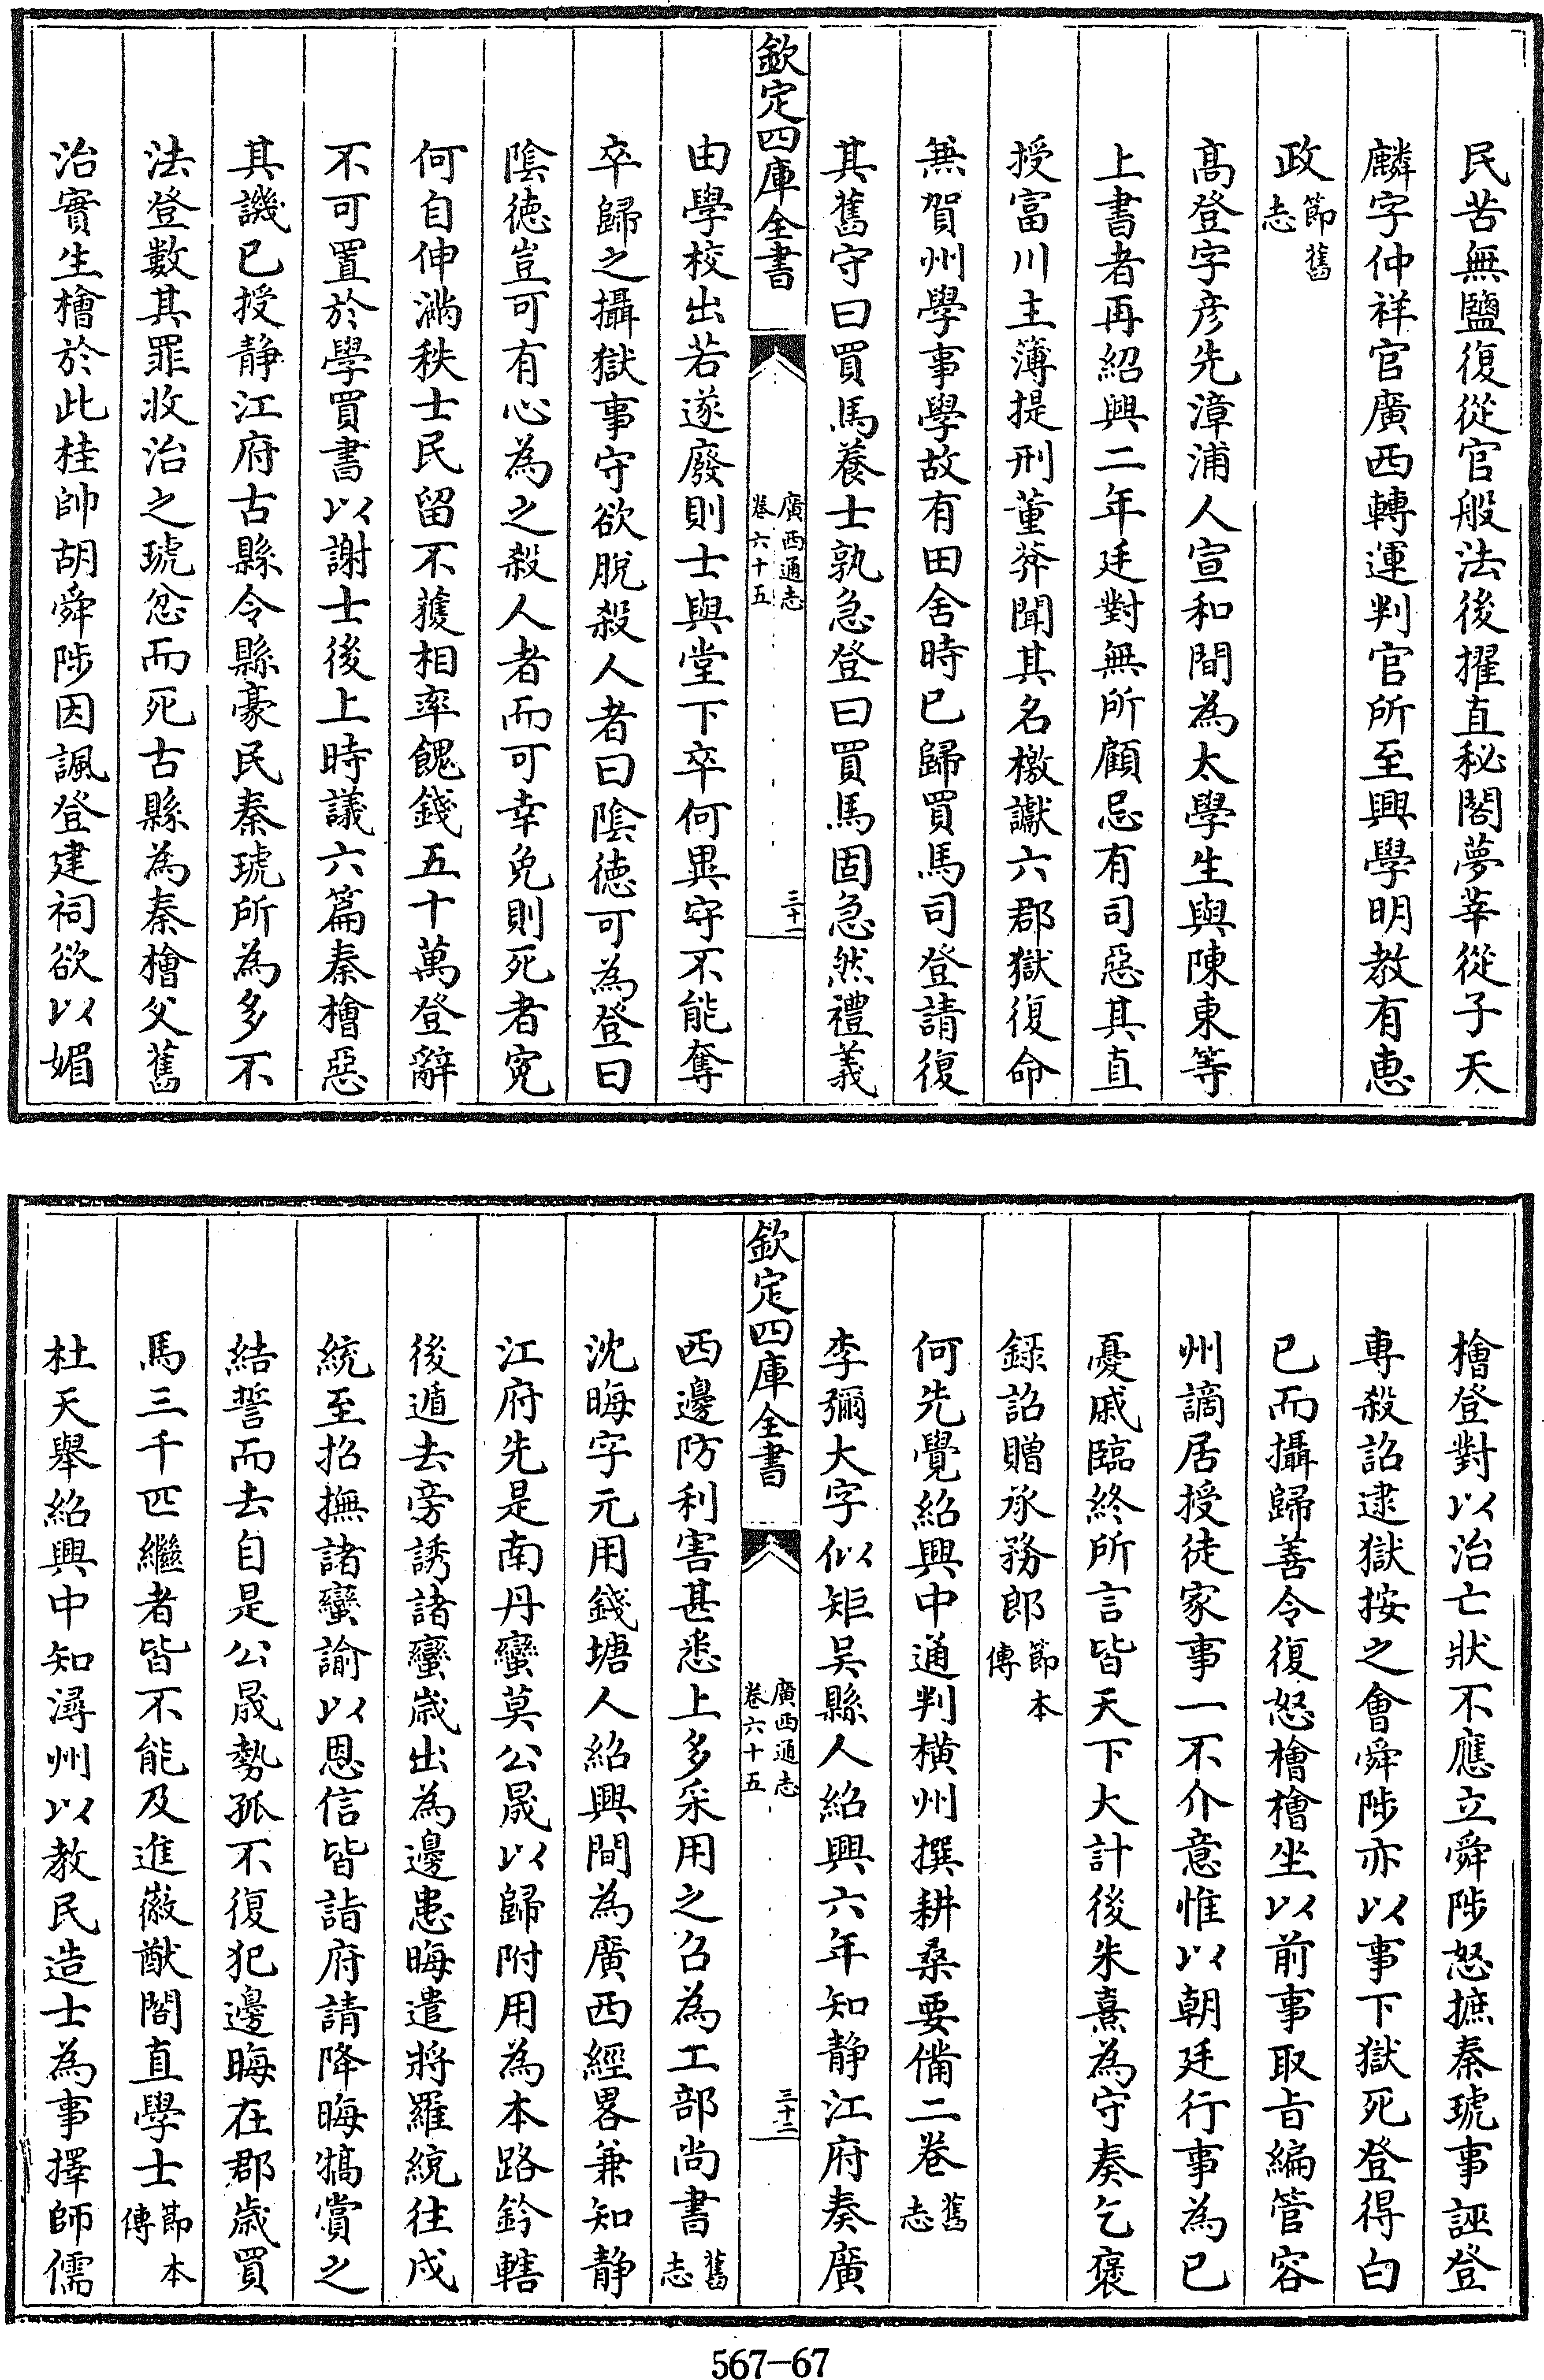 民苦無鹽復從官般法後擢直秘閣夢莘從子天
麟字仲祥官廣西轉運判官所至興學明教有恵
政節舊志
髙登字彦先漳浦人宣和間為太學生與陳東等
上書者再紹興二年廷對無所顧忌有司惡其直
授富川主簿提刑董弅聞其名檄讞六郡獄復命
無賀州學事學故有田舍時已歸買馬司登請復
其舊守曰買馬養士孰急登曰買馬固急然禮義
欽定四庫全書
廣西通志
卷六十五
三十一
由學校出若遂廢則士與堂下卒何異守不能奪
卒歸之攝獄事守欲脫殺人者曰隂徳可為登曰
隂徳豈可有心為之殺人者而可幸免則死者寃
何自伸滿秩士民留不獲相率餽錢五十萬登辭
不可置於學買書以謝士後上時議六篇秦檜惡
其譏已授静江府古縣令縣豪民秦琥所為多不
法登數其罪收治之琥忿而死古縣為秦檜父舊
治實生檜於此桂帥胡舜陟因諷登建祠欲以媚
檜登對以治亡狀不應立舜陟怒摭秦琥事誣登
專殺詔逮獄按之會舜陟亦以事下獄死登得白
已而攝歸善令復怒檜檜坐以前事取旨編管容
州謫居授徒家事一不介意惟以朝廷行事為已
憂戚臨終所言皆天下大計後朱熹為守奏乞褒
録詔贈承務郎節本傳
何先覺紹興中通判横州撰耕桑要備二巻舊志
李彌大字似矩吳縣人紹興六年知静江府奏廣
欽定四庫全書
廣西通志
卷六十五
三十二
西邊防利害甚悉上多采用之召為工部尚書舊志
沈晦字元用錢塘人紹興間為廣西經畧兼知静
江府先是南丹蠻莫公晟以歸附用為本路鈐轄
後遁去旁誘諸蠻歳出為邊患晦遣將羅統往戍
統至招撫諸蠻諭以恩信皆詣府請降晦犒賞之
結誓而去自是公晟勢孤不復犯邊晦在郡歳買
馬三千匹繼者皆不能及進徽猷閣直學士節本傳
杜天舉紹興中知潯州以教民造士為事擇師儒
567-67